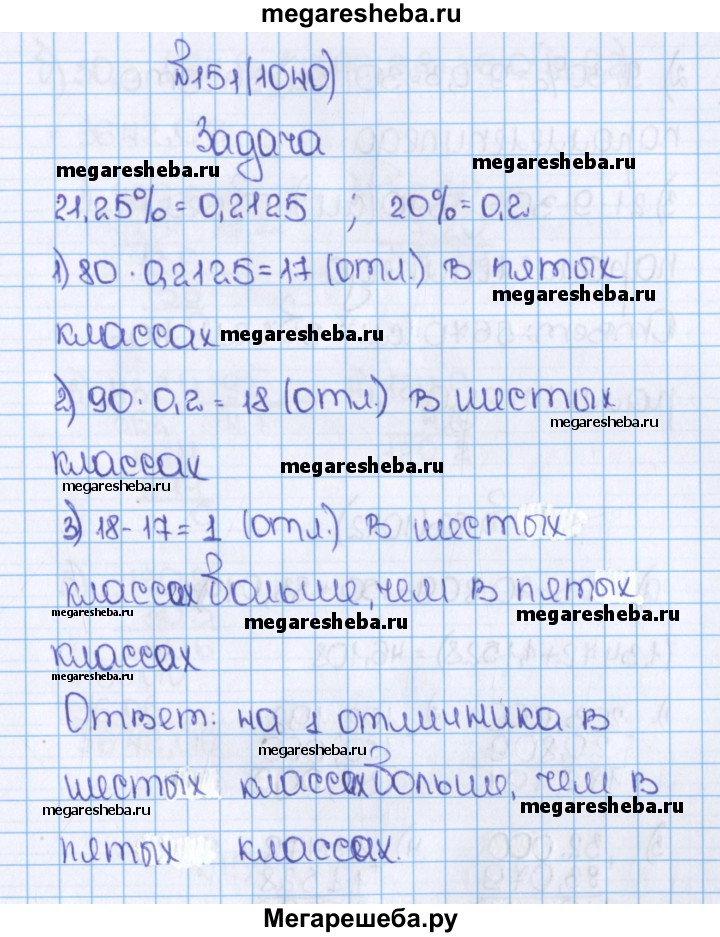 megaresheba.ru
№151(1040)
Задача
megaresheba.ru megaresheba.ru
21,25% = 0,2125 ; 20% = 0,2
1) 80 · 0,2125 = 17 (отл.) в пятых
megaresheba.ru
классах megaresheba.ru
2) 90 · 0,2 = 18 (отл.) в шестых
megaresheba.ru
классах megaresheba.ru
megaresheba.ru
3) 18 - 17 = 1 (отл.) в шестых
классах больше, чем в пятых
megaresheba.ru megaresheba.ru megaresheba.ru
классах
megaresheba.ru
Ответ: на 1 отличника в
megaresheba.ru
шестых классах больше, чем в
megaresheba.ru megaresheba.ru
пятых классах.
Мегарешеба.ру